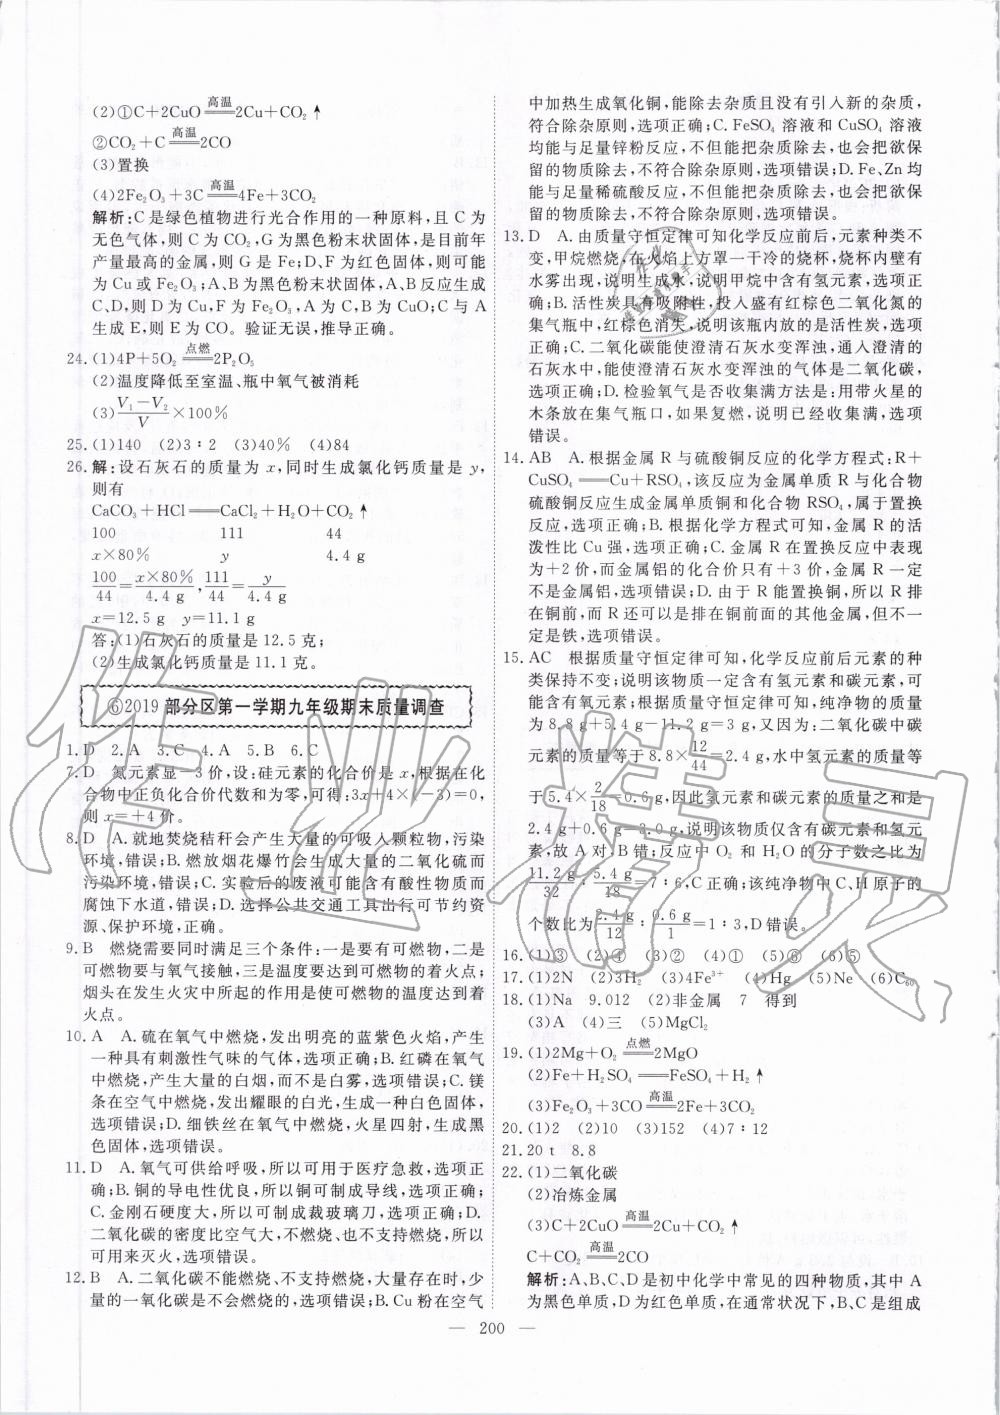 (2)①C+2CuO=高温=2Cu+CO₂↑
②CO₂+C=高温=2CO
(3)置换
(4)2Fe₂O₃+3C=高温=4Fe+3CO₂
解析:C是绿色植物进行光合作用的一种原料,且C为
无色气体,则C为CO₂,G为黑色粉末状固体,是目前年
产量最高的金属,则G是Fe;D、F为红色固体,则可能
为Cu或Fe₂O₃;A、B为黑色粉末状固体,A、B反应生成
C、D,则D为Cu,F为Fe₂O₃,A为C,B为CuO;C与A
生成E,则E为CO。验证无误,推导正确。
24.(1)4P+5O₂=点燃=2P₂O₅
(2)温度降低至室温、瓶中氧气被消耗
(3)(V₁-V₂)/V×100%
25.(1)140 (2)3∶2 (3)40% (4)84
26.解:设石灰石的质量为x,同时生成氯化钙质量是y,
则有
CaCO₃+HCl══CaCl₂+H₂O+CO₂↑
100 111 44
x×80% y 4.4 g
100/44=x×80%/4.4 g,111/44=y/4.4 g
x=12.5 g y=11.1 g
答:(1)石灰石的质量是12.5克;
(2)生成氯化钙质量是11.1克。
⑥2019 部分区第一学期九年级期末质量调查
1.D 2.A 3.C 4.A 5.B 6.C
7.D 氮元素显-3价,设:硅元素的化合价是x,根据在化
合物中正负化合价代数和为零,可得:3x+4×(-3)=0,
则x=+4价。
8.D A.就地焚烧秸秆会产生大量的可吸入颗粒物,污染
环境,错误;B.燃放烟花爆竹会生成大量的二氧化硫而
污染环境,错误;C.实验后的废液可能含有酸性物质而
腐蚀下水道,错误;D.选择公共交通工具出行可节约资
源、保护环境,正确。
9.B 燃烧需要同时满足三个条件:一是要有可燃物,二是
可燃物要与氧气接触,三是温度要达到可燃物的着火点;
烟头在发生火灾中所起的作用是使可燃物的温度达到着
火点。
10.A A.硫在氧气中燃烧,发出明亮的蓝紫色火焰,产生
一种具有刺激性气味的气体,选项正确;B.红磷在氧气
中燃烧,产生大量的白烟,而不是白雾,选项错误;C.镁
条在空气中燃烧,发出耀眼的白光,生成一种白色固体,
选项错误;D.细铁丝在氧气中燃烧,火星四射,生成黑
色固体,选项错误。
11.D A.氧气可供给呼吸,所以可用于医疗急救,选项正
确;B.铜的导电性优良,所以铜可制成导线,选项正确;
C.金刚石硬度大,所以可制成裁玻璃刀,选项正确;D.
二氧化碳的密度比空气大,不燃烧、也不支持燃烧,所以
可用来灭火,选项错误。
12.B A.二氧化碳不能燃烧、不支持燃烧,大量存在时,少
量的一氧化碳是不会燃烧的,选项错误;B.Cu粉在空气
中加热生成氧化铜,能除去杂质且没有引入新的杂质,
符合除杂原则,选项正确;C.FeSO₄溶液和CuSO₄溶液
均能与足量锌粉反应,不但能把杂质除去,也会把欲保
留的物质除去,不符合除杂原则,选项错误;D.Fe、Zn均
能与足量稀硫酸反应,不但能把杂质除去,也会把欲保
留的物质除去,不符合除杂原则,选项错误。
13.D A.由质量守恒定律可知化学反应前后,元素种类不
变,甲烷燃烧,在火焰上方罩一干冷的烧杯,烧杯内壁有
水雾出现,说明生成水,说明甲烷中含有氢元素,选项正
确;B.活性炭具有吸附性,投入盛有红棕色二氧化氮的
集气瓶中,红棕色消失,说明该瓶内放的是活性炭,选项
正确;C.二氧化碳能使澄清石灰水变浑浊,通入澄清的
石灰水中,能使澄清石灰水变浑浊的气体是二氧化碳,
选项正确;D.检验氧气是否收集满方法是:用带火星的
木条放在集气瓶口,如果复燃,说明已经收集满,选项
错误。
14.AB A.根据金属R与硫酸铜反应的化学方程式:R+
CuSO₄══Cu+RSO₄,该反应为金属单质R与化合物
硫酸铜反应生成金属单质铜和化合物RSO₄,属于置换
反应,选项正确;B.根据化学方程式可知,金属R的活
泼性比Cu强,选项正确;C.金属R在置换反应中表现
为+2价,而金属铝的化合价只有+3价,金属R一定
不是金属铝,选项错误;D.由于R能置换铜,所以R排
在铜前,而R还可以是排在铜前面的其他金属,但不一
定是铁,选项错误。
15.AC 根据质量守恒定律可知,化学反应前后元素的种
类保持不变;说明该物质一定含有氢元素和碳元素,可
能含有氧元素,根据质量守恒定律可知,该纯净物的质
量为8.8 g+5.4 g-11.2 g=3 g,又因为:二氧化碳中碳
元素的质量等于8.8×12/44=2.4 g,水中氢元素的质量等
于5.4×2/18=0.6 g,因此氢元素和碳元素的质量之和是
2.4 g+0.6 g=3.0 g,说明该物质仅含有碳元素和氢元
素,故A对,B错;反应中O₂和H₂O的分子数之比为
11.2 g/32∶5.4 g/18=7∶6,C正确;该纯净物中C、H原子的
个数比为2.4 g/12∶0.6 g/1=1∶3,D错误。
16.(1)③ (2)④ (3)② (4)① (5)⑥ (6)⑤
17.(1)2N (2)3H₂ (3)Fe³⁺ (4)Hg (5)Ne (6)C₆₀
18.(1)Na 9.012 (2)非金属 7 得到
(3)A (4)三 (5)MgCl₂
19.(1)2Mg+O₂=点燃=2MgO
(2)Fe+H₂SO₄══FeSO₄+H₂↑
(3)Fe₂O₃+3CO=高温=2Fe+3CO₂
20.(1)2 (2)10 (3)152 (4)7∶12
21.20 t 8.8
22.(1)二氧化碳
(2)冶炼金属
(3)C+2CuO=高温=2Cu+CO₂↑
C+CO₂=高温=2CO
解析:A、B、C、D是初中化学中常见的四种物质,其中A
为黑色单质,D为红色单质,在通常状况下,B、C是组成
— 200 —
作业精灵